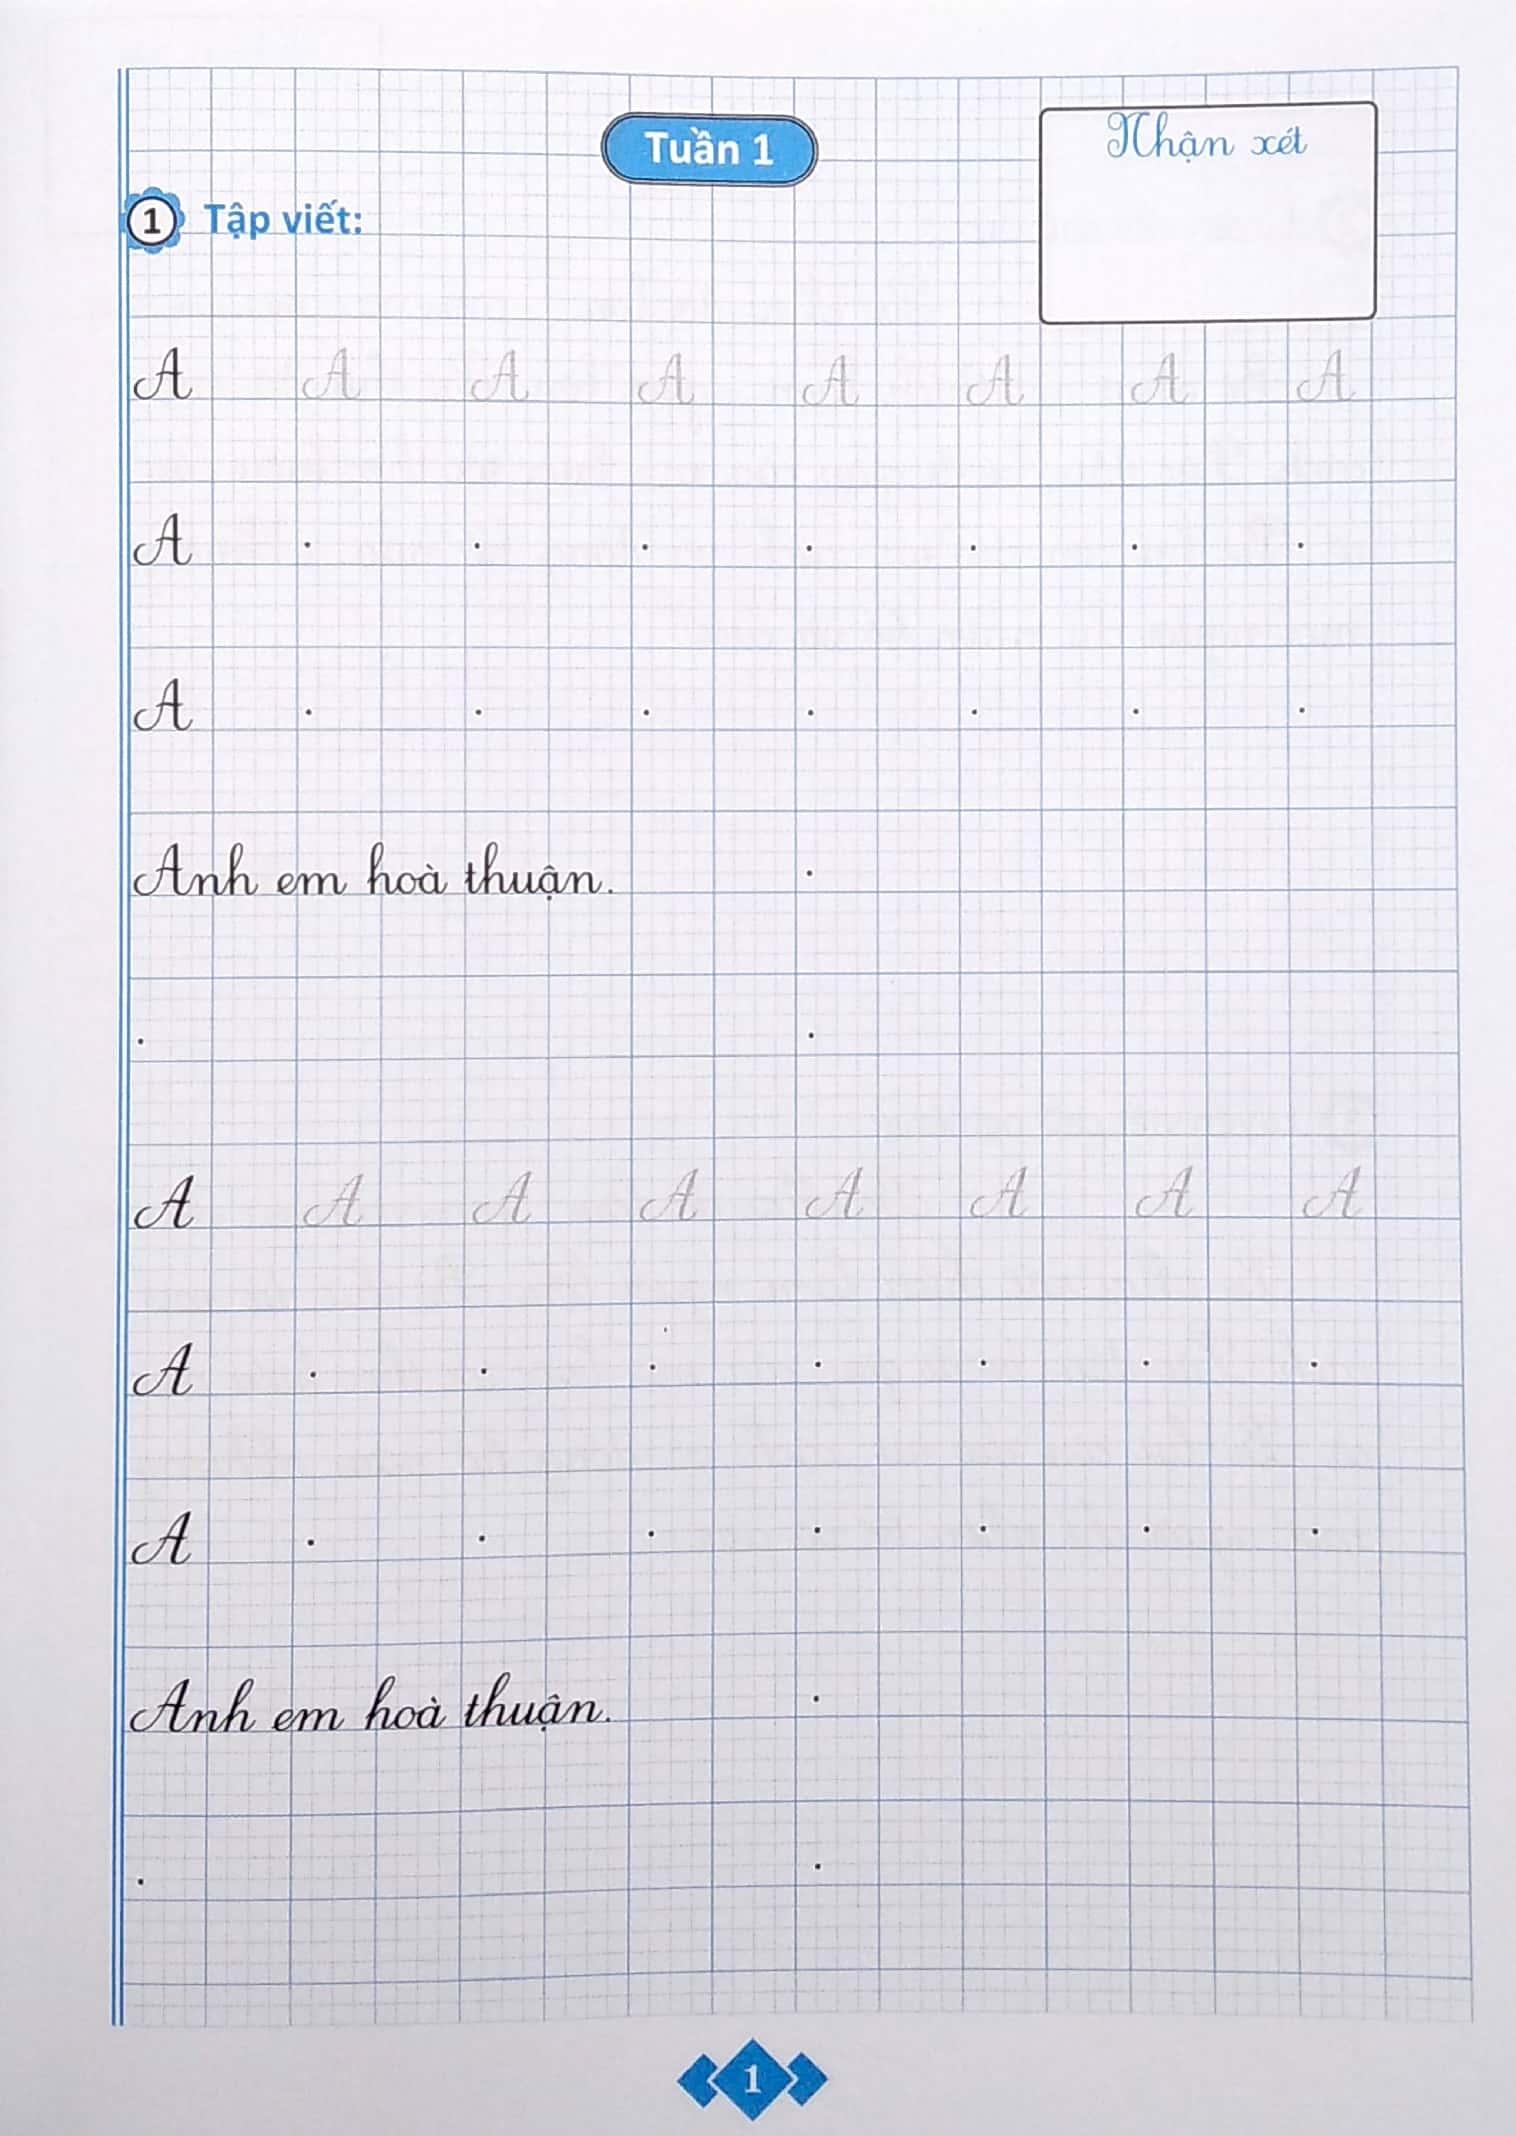 Tuần 1
Nhận xét
1 Tập viết:
A A A A A A A A
A . . . . . . .
A . . . . . . .
Anh em hoà thuận. .
. .
A A A A A A A A
A . . . . . . .
A . . . . . . .
Anh em hoà thuận. .
. .
1